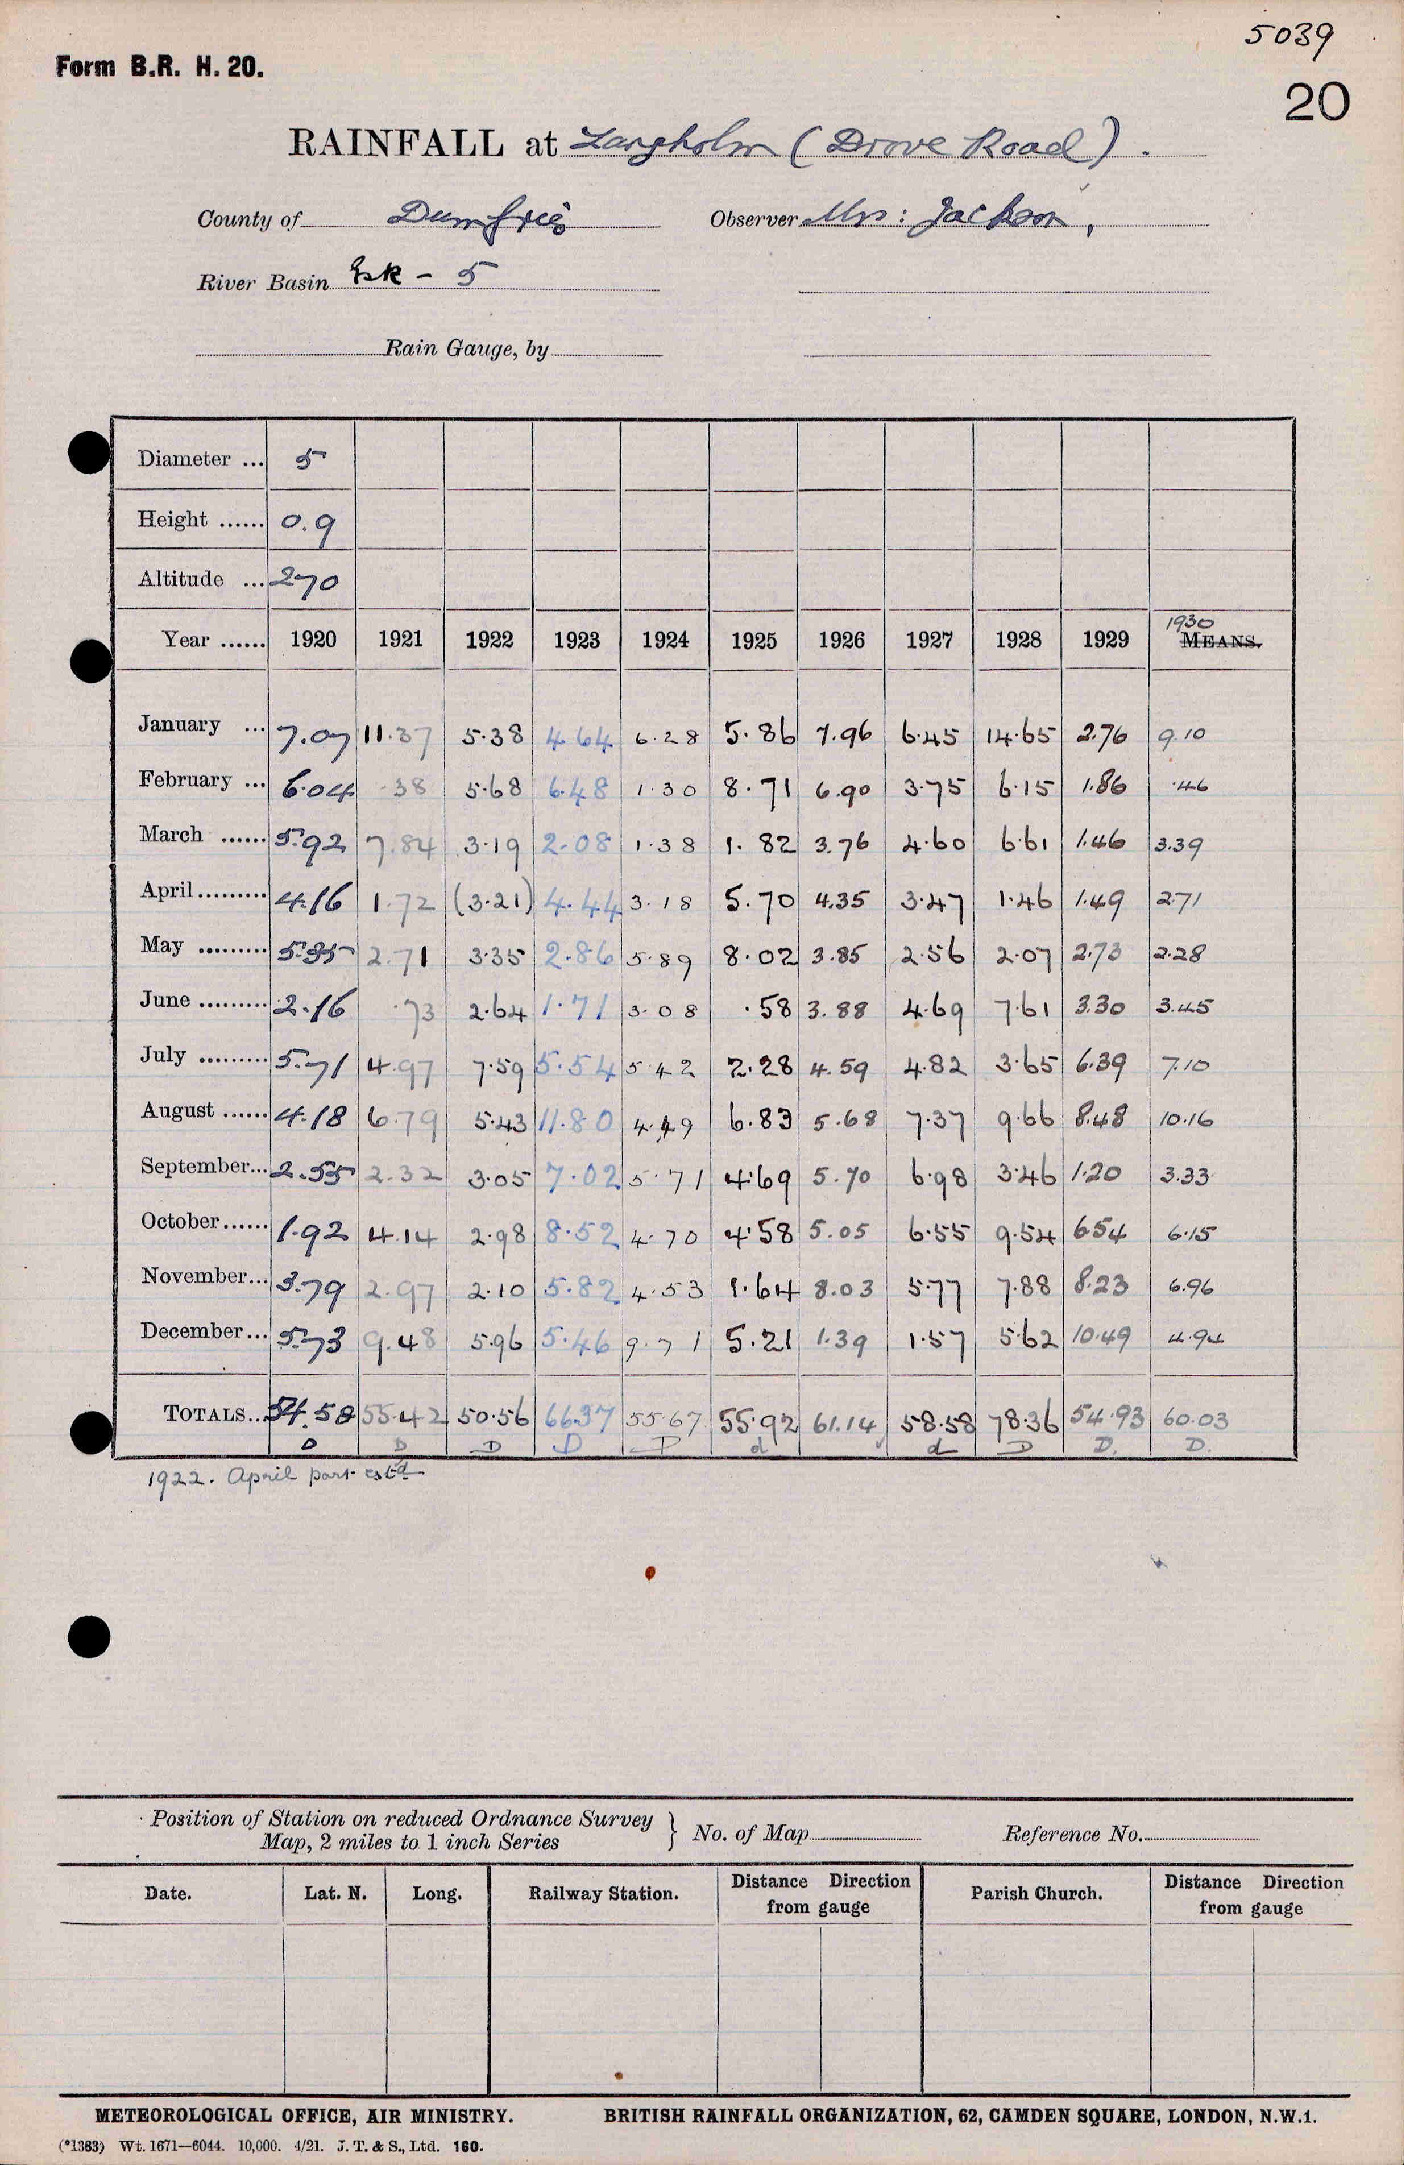 5039
Form B.R. H. 20.
20
RAINFALL at Langholm (Drove Road).
County of Dumfries Observer Mrs: Jackson,
River Basin Esk - 5
Rain Gauge, by
Diameter ... 5
Height ...... 0.9
Altitude ... 270
1930
Year ...... 1920 1921 1922 1923 1924 1925 1926 1927 1928 1929 MEANS.
January ... 7.07 11.37 5.38 4.64 6.28 5.86 7.96 6.45 14.65 2.76 9.10
February ... 6.04 .38 5.68 6.48 1.30 8.71 6.90 3.75 6.15 1.86 .46
March ...... 5.92 7.84 3.19 2.08 1.38 1.82 3.76 4.60 6.61 1.46 3.39
April ......... 4.16 1.72 (3.21) 4.44 3.18 5.70 4.35 3.47 1.46 1.49 2.71
May ......... 5.35 2.71 3.35 2.86 5.89 8.02 3.85 2.56 2.07 2.73 2.28
June ......... 2.16 .73 2.64 1.71 3.08 .58 3.88 4.69 7.61 3.30 3.45
July ......... 5.71 4.97 7.59 5.54 5.42 2.28 4.59 4.82 3.65 6.39 7.10
August ...... 4.18 6.79 5.43 11.80 4.49 6.83 5.68 7.37 9.66 8.48 10.16
September... 2.55 2.32 3.05 7.02 5.71 4.69 5.70 6.98 3.46 1.20 3.33
October...... 1.92 4.14 2.98 8.52 4.70 4.58 5.05 6.55 9.54 6.54 6.15
November... 3.79 2.97 2.10 5.82 4.53 1.64 8.03 5.77 7.88 8.23 6.96
December... 5.73 9.48 5.96 5.46 9.71 5.21 1.39 1.57 5.62 10.49 4.94
TOTALS... 54.58 55.42 50.56 66.37 55.67 55.92 61.14 58.58 78.36 54.93 60.03
D D D D D d d D D. D.
1922. April part estd
Position of Station on reduced Ordnance Survey
Map, 2 miles to 1 inch Series } No. of Map Reference No.
Date. Lat. N. Long. Railway Station. Distance Direction from gauge Parish Church. Distance Direction from gauge
METEOROLOGICAL OFFICE, AIR MINISTRY. BRITISH RAINFALL ORGANIZATION, 62, CAMDEN SQUARE, LONDON, N.W.1.
(*1383) Wt. 1671—6044. 10,000. 4/21. J. T. & S., Ltd. 160.